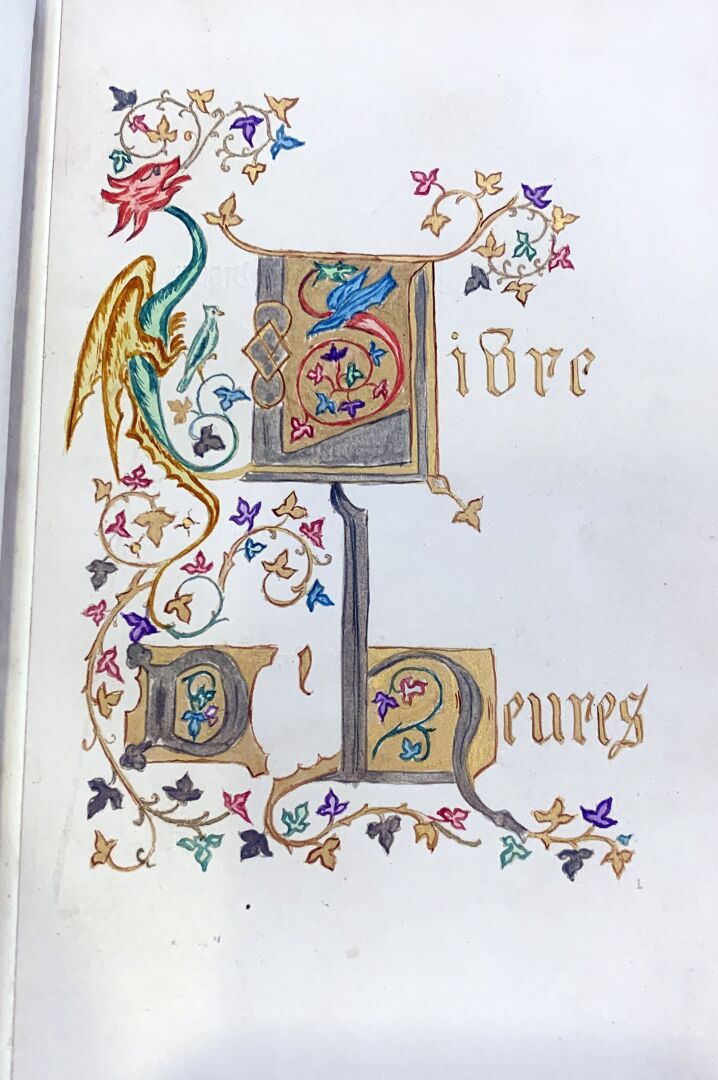 Livre
D'heures
1